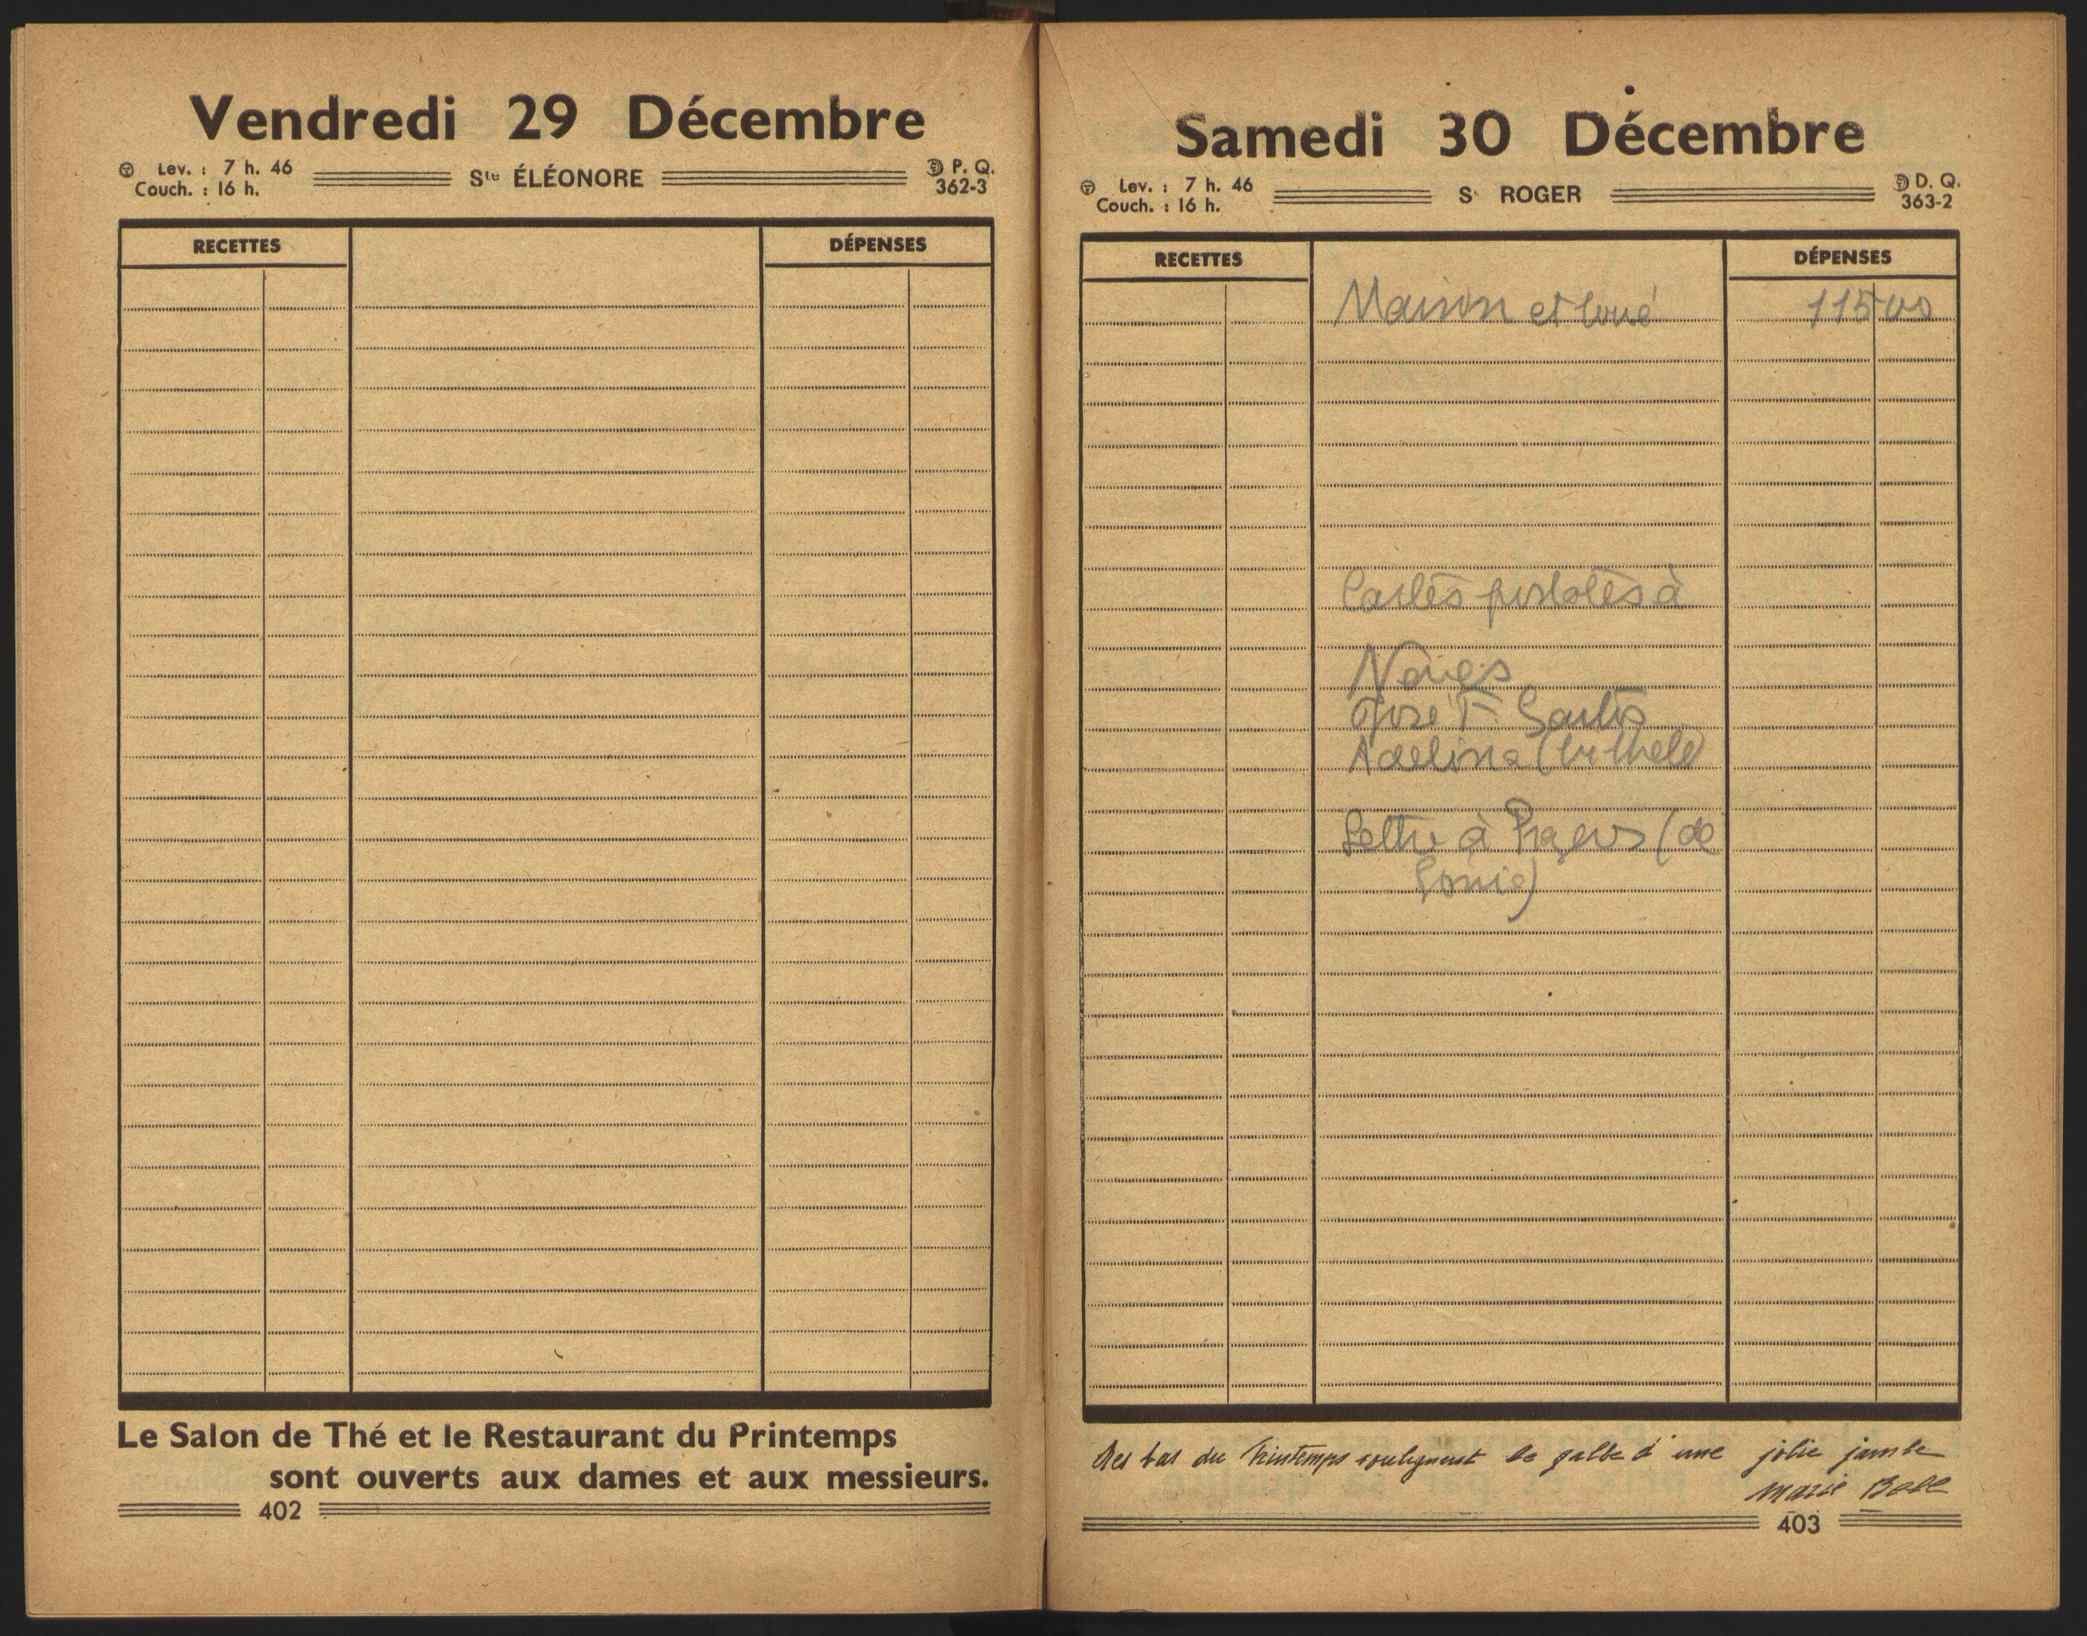 Vendredi 29 Décembre
Lev. : 7 h. 46
Couch. : 16 h.
Ste ÉLÉONORE
P. Q.
362-3
RECETTES
DÉPENSES
Le Salon de Thé et le Restaurant du Printemps
sont ouverts aux dames et aux messieurs.
402
Samedi 30 Décembre
Lev. : 7 h. 46
Couch. : 16 h.
St ROGER
D. Q.
363-2
RECETTES
DÉPENSES
Maison et loué 115 00
Cartes postales à
José F.
Adelina
Lettre à (de
Sonia)
des bas du Printemps soulignent le galbe d'une jolie jambe
Marie Bell
403